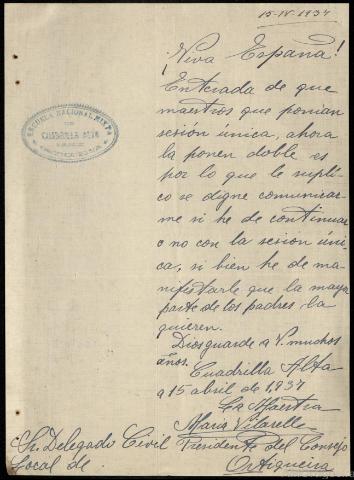 15-IV-1937
¡Viva España!
Enterada de que
maestros que ponían
sesión única, ahora
la ponen doble es
por lo que le supli-
co se digne comunicar-
me si he de continuar
o no con la sesión úni-
ca, si bien he de ma-
nifestarle que la mayor
parte de los padres la
quieren.
Dios guarde a V. muchos
años.
Cuadrilla Alta
a 15 abril de 1,937
La Maestra
María Vilarelle
Sr. Delegado Civil Presidente del Consejo
Local de Ortigueira
ESCUELA NACIONAL MIXTA
DE
CUADRILLA ALTA